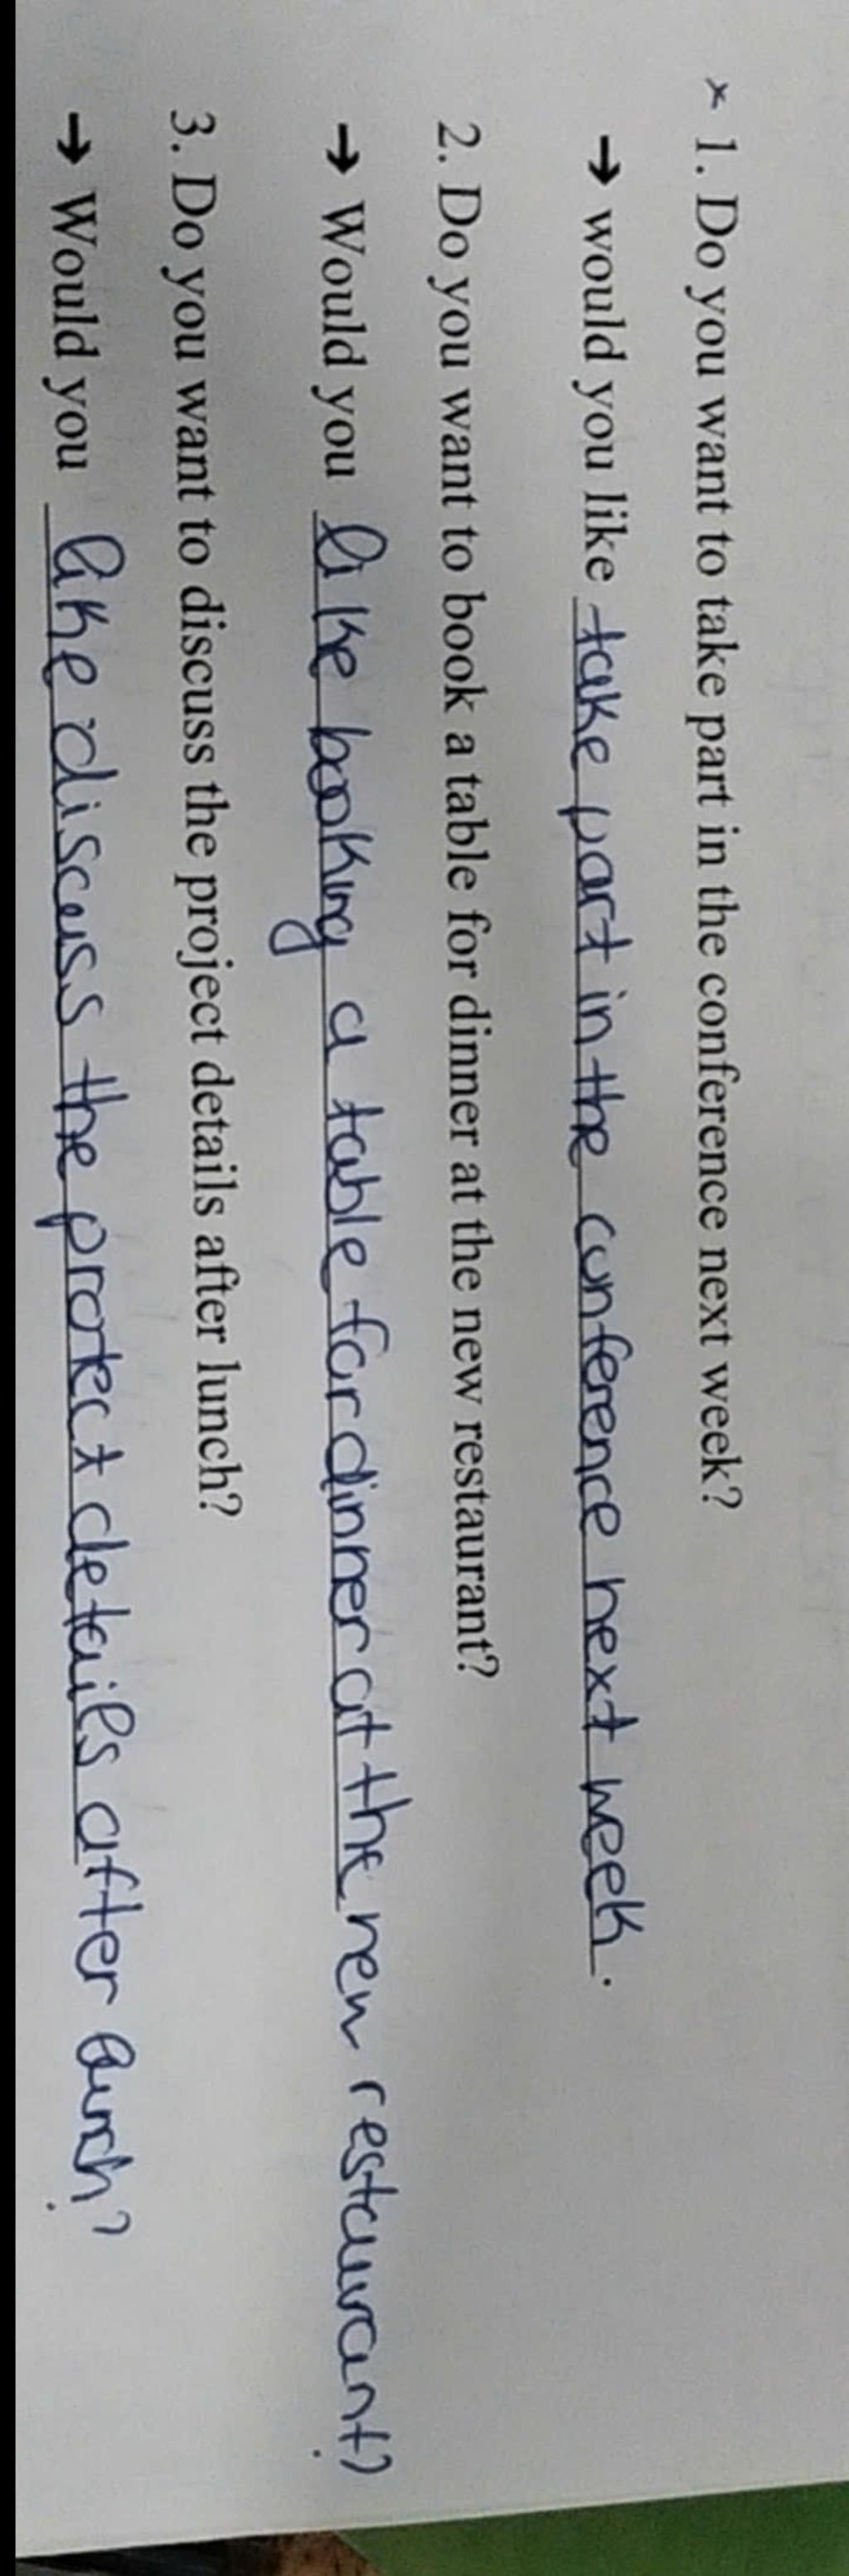 × 1. Do you want to take part in the conference next week?
→ would you like take part in the conference next week.
2. Do you want to book a table for dinner at the new restaurant?
→ Would you like booking a table for dinner at the new restaurant?
3. Do you want to discuss the project details after lunch?
→ Would you like discuss the protect details after lunch?